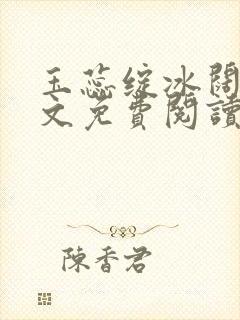 玉蕊綻冰閣
文免費閱讀
陳香君